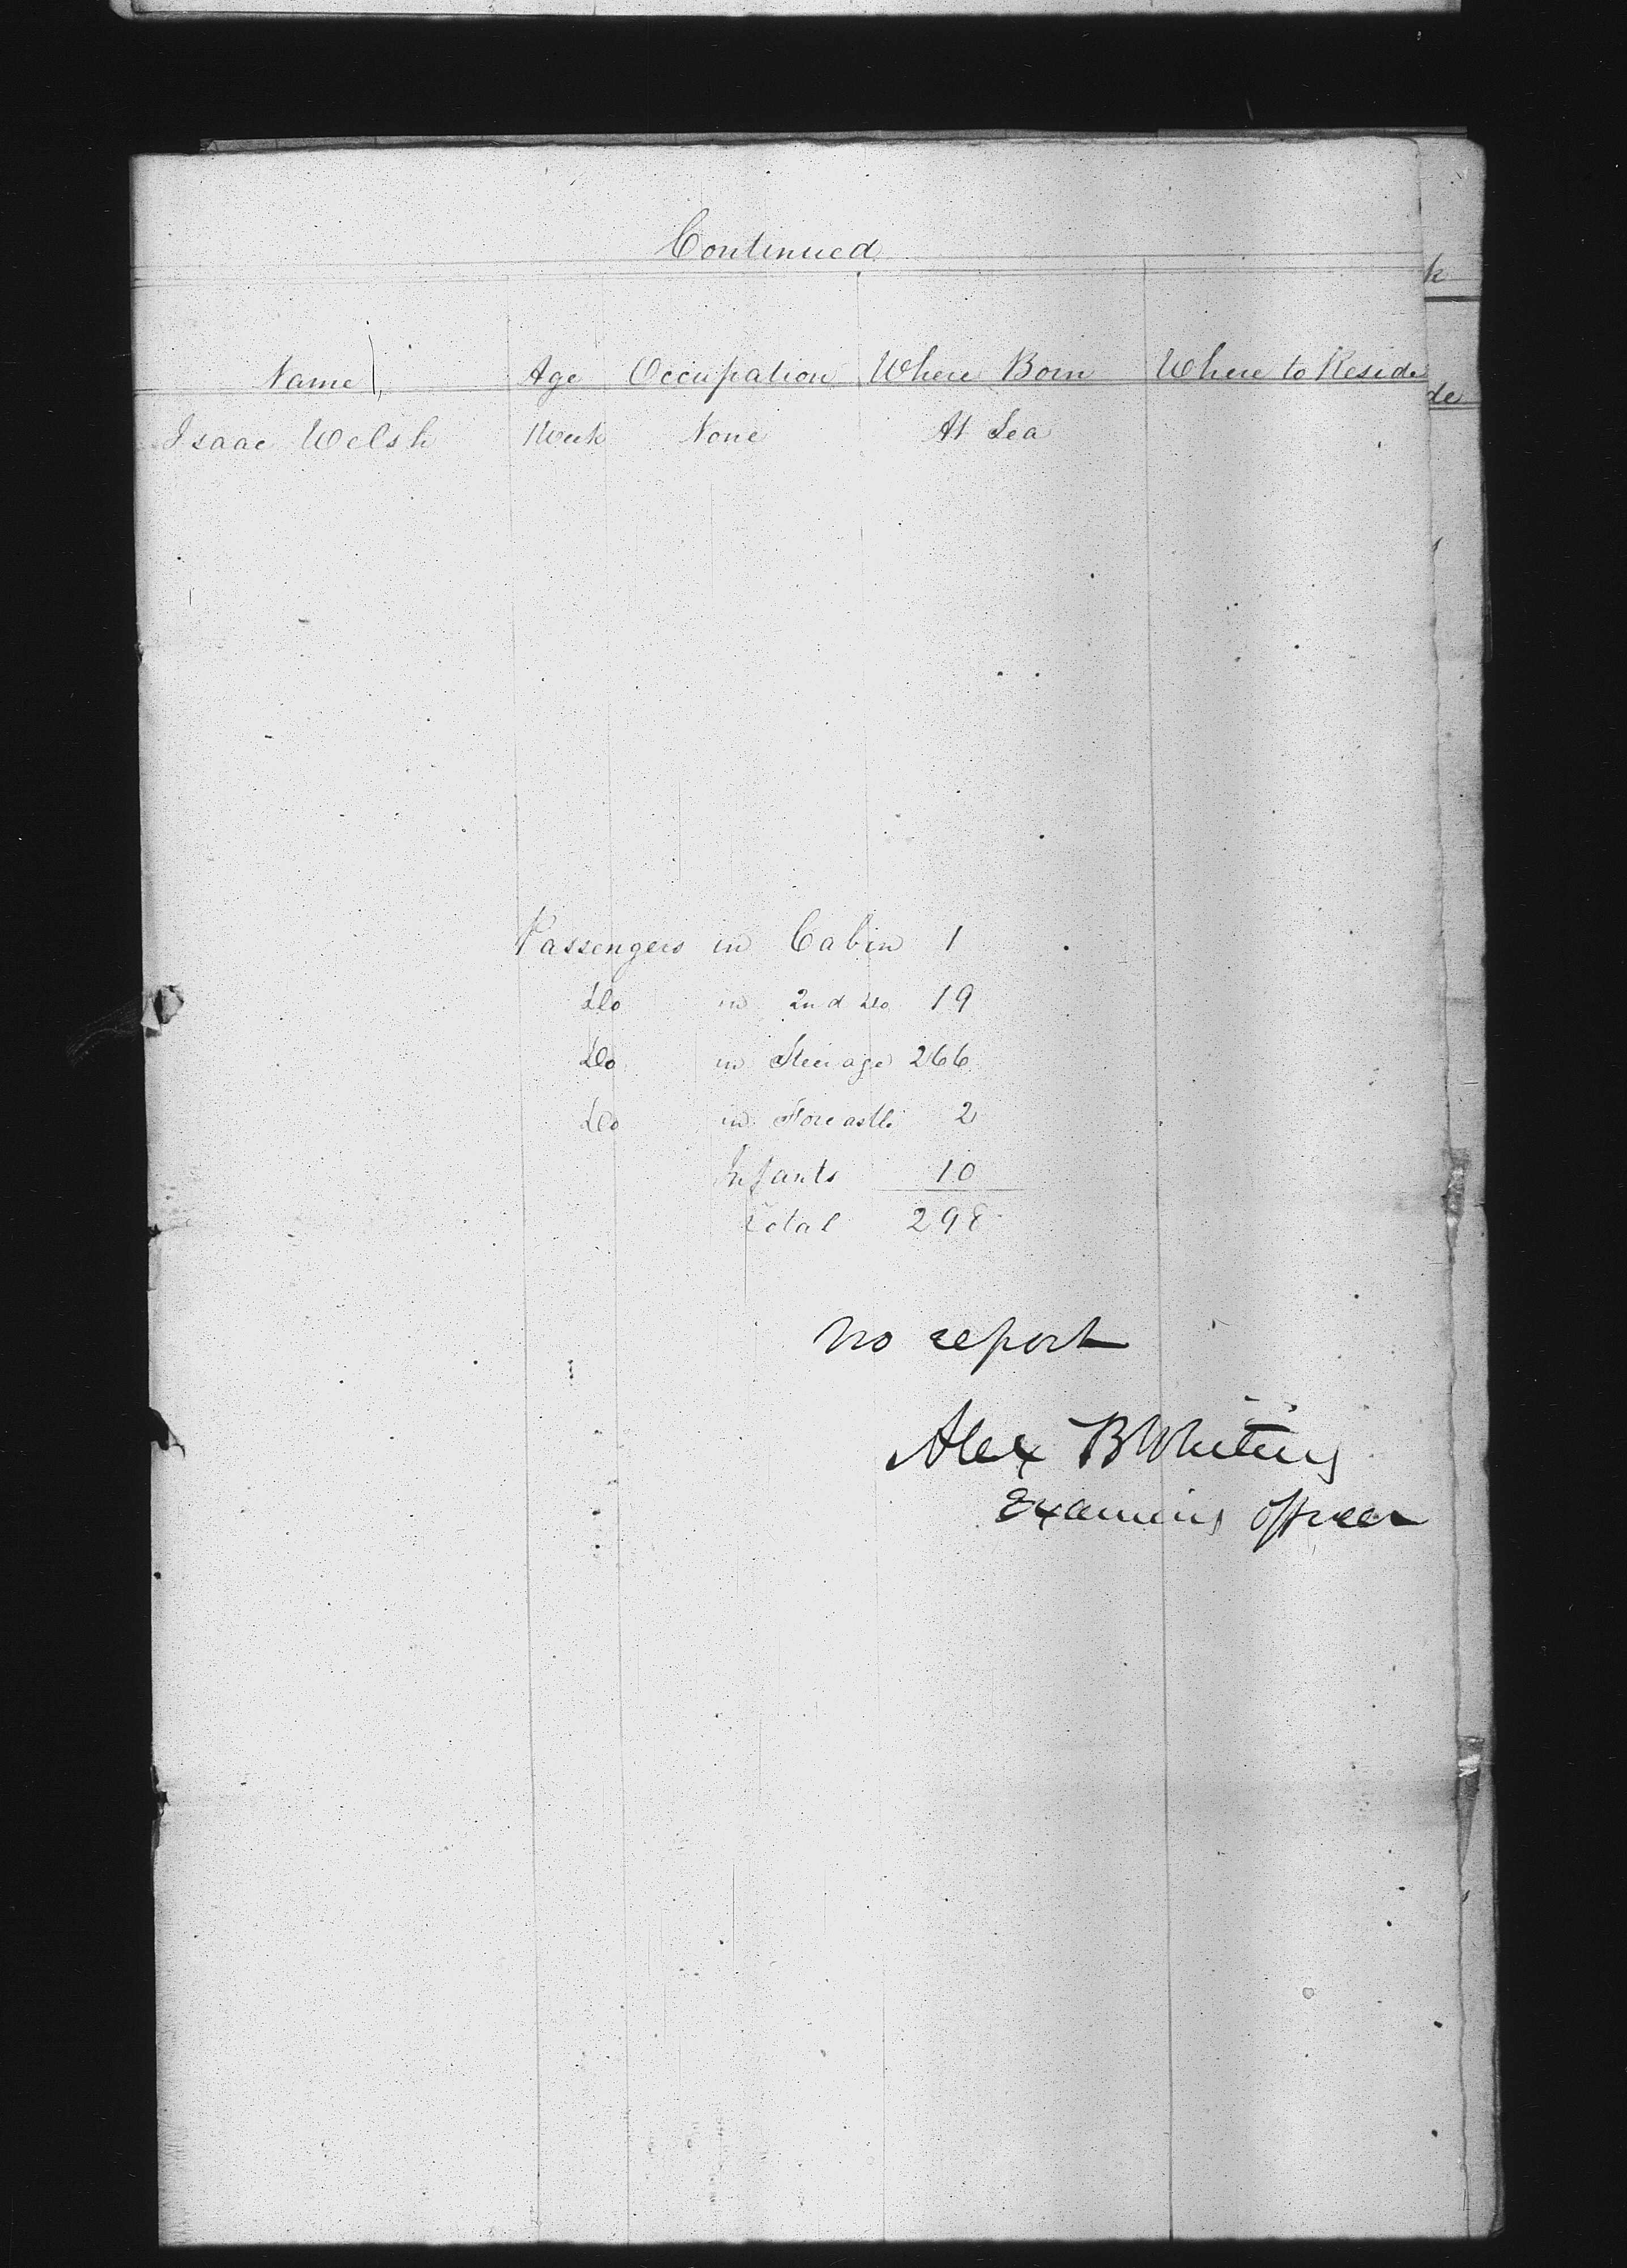 Continued
Name Age Occupation Where Born Where to Reside
Isaac Welsh 1 Week None At Sea
Passengers in Cabin 1
Do in 2nd Do 19
Do in Steerage 266
Do in Forcastle 2
Infants 10
Total 298
no report
Alex B Whiting
Examining Officer
k
de